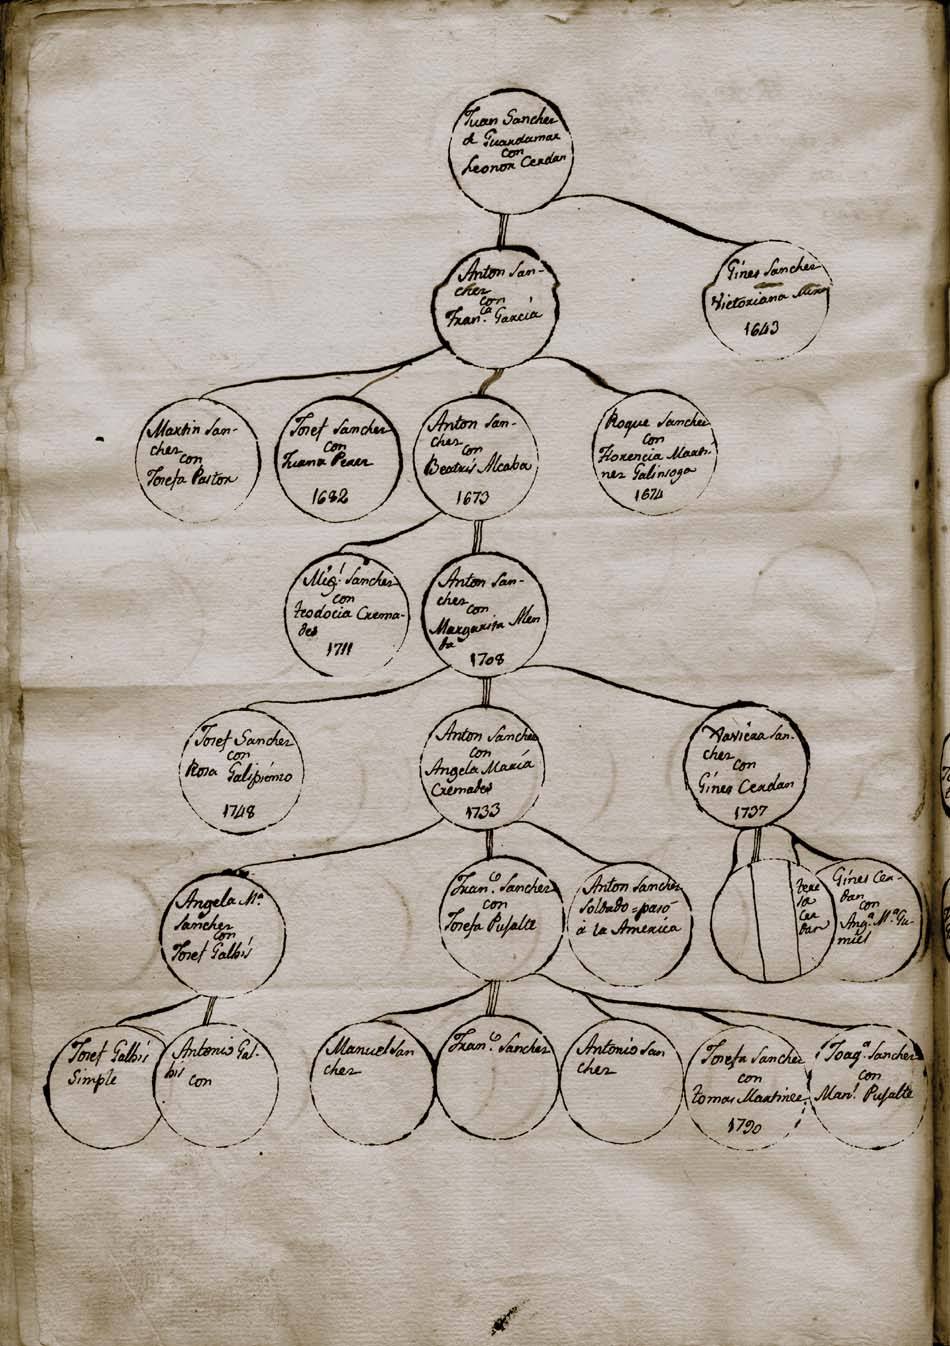 Juan Sanchez
de Guardamar
con
Leonor Cerdan
Gines Sanchez
Victoriana
1643
Anton San-
chez
con
Fran.ca García
Martin San-
chez
con
Josefa Pastor
Josef Sanchez
con
Juana Perez
1682
Anton San-
chez
con
Beatris Alcaba
1673
Roque Sanchez
con
Florencia Marti-
nez Galinsoga
1674
Mig.l Sanchez
con
teodocia Crema-
des
1711
Anton San-
chez
con
Margarita Alen
da
1708
Josef Sanchez
con
Rosa
1748
Anton Sanchez
con
Angela María
Cremades
1733
Xaviera San-
chez
con
Gínes Cerdan
1737
Angela M.a
Sanchez
con
Josef Galbis
Fran.co Sanchez
con
Josefa Pujalte
Anton Sanchez
Soldado = pasó
à la America
tere
sa
Cer
dan
Gínes Cer-
dan
con
Ang.a M.a Gu-
miel
Josef Galbis
Simple
Antonio Gal-
bis
con
Manuel San
chez
Fran.co Sanchez
Antonio San
chez
Josefa Sanchez
con
tomas Martinez
1790
Joaq.a Sanchez
con
Man.l Pujalte